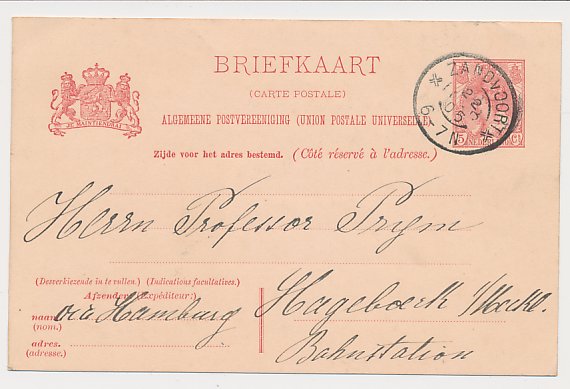 BRIEFKAART
(CARTE POSTALE)
ALGEMEENE POSTVEREENIGING (UNION POSTALE UNIVERSELLE)
Zijde voor het adres bestemd. (Côté réservé à l'adresse.)
JE MAINTIENDRAI
ZANDVOORT
6-7N
Herrn Professor Prym
(Desverkiezende in te vullen.) (Indications facultatives.)
Afzender: (Expéditeur:)
naam
(nom.)
adres.
(adresse.)
via Hamburg
Hageboeck /Meckl.
Bahnstation